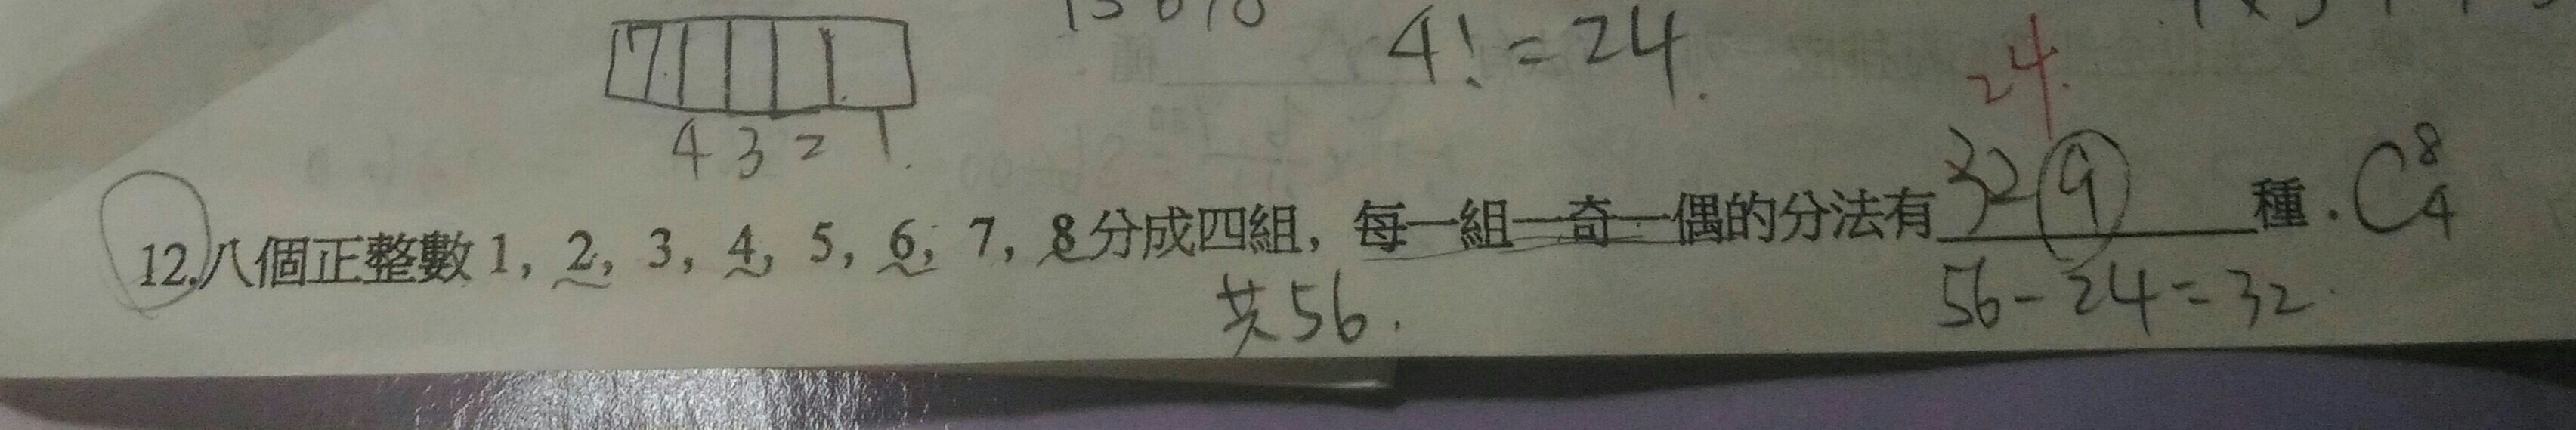 7
4! = 24.
4 3 2 1.
24.
32 9
12.八個正整數 1, 2, 3, 4, 5, 6, 7, 8 分成四組, 每一組一奇一偶的分法有________種. C⁸₄
共56.
56-24=32.